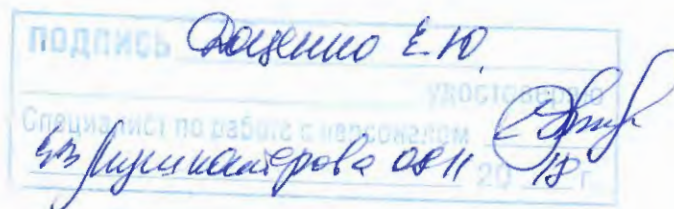 ПОДПИСЬ Доценко Е.Ю.
удостоверяю
Специалист по работе с персоналом
08 11 2018 г.